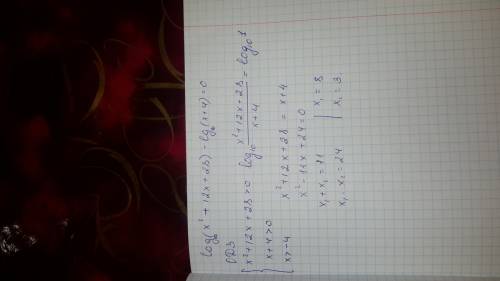 log(x² + 12x + 28) - lg(x+4) = 0
ОДЗ
{ x² + 12x + 28 > 0
x + 4 > 0
{ x > -4
log₁₀ (x² + 12x + 28)/(x + 4) = log₁₀ 1
x² + 12x + 28 = x + 4
x² - 11x + 24 = 0
x₁ + x₂ = 11 | x₁ = 8
x₁ · x₂ = 24 | x₂ = 3